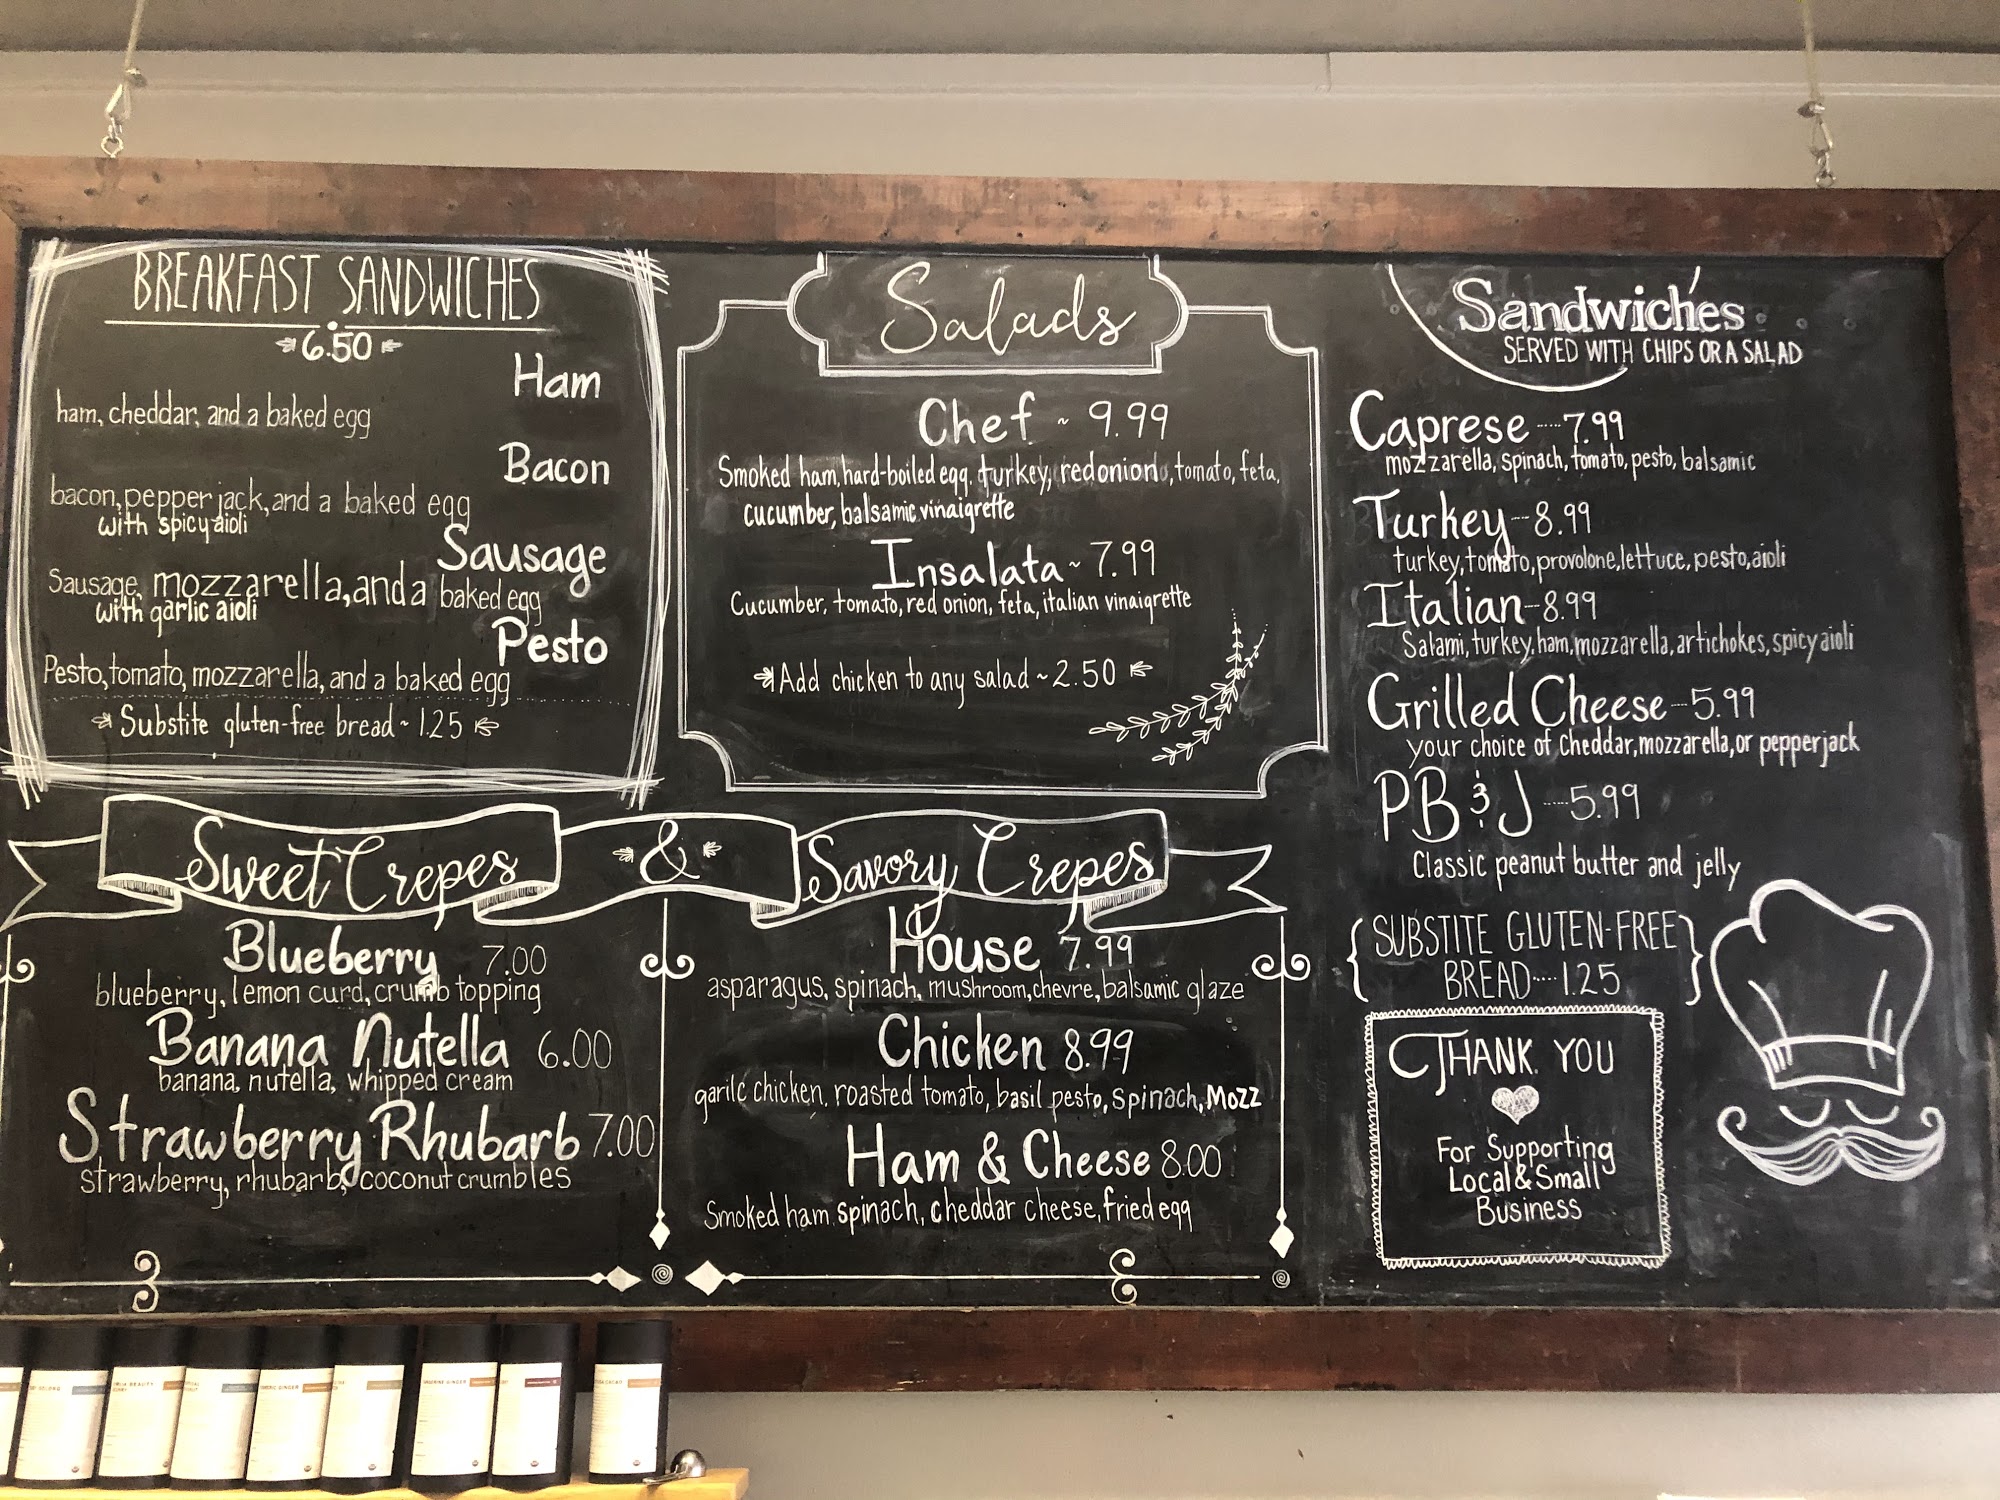 BREAKFAST SANDWICHES
6.50
Ham
ham, cheddar, and a baked egg
Bacon
bacon, pepper jack, and a baked egg
with spicy aioli
Sausage
Sausage, mozzarella, and a baked egg
with garlic aioli
Pesto
Pesto, tomato, mozzarella, and a baked egg
Substite gluten-free bread ~ 1.25
Salads
Chef ~ 9.99
Smoked ham, hard-boiled egg, turkey, red onion, tomato, feta,
cucumber, balsamic vinaigrette
Insalata ~ 7.99
Cucumber, tomato, red onion, feta, italian vinaigrette
Add chicken to any salad ~ 2.50
Sandwiches
SERVED WITH CHIPS OR A SALAD
Caprese ---- 7.99
mozzarella, spinach, tomato, pesto, balsamic
Turkey --- 8.99
turkey, tomato, provolone, lettuce, pesto, aioli
Italian -- 8.99
Salami, turkey, ham, mozzarella, artichokes, spicy aioli
Grilled Cheese --- 5.99
your choice of cheddar, mozzarella, or pepperjack
PB & J ---- 5.99
Classic peanut butter and jelly
{SUBSTITE GLUTEN-FREE
BREAD ---- 1.25}
Sweet Crepes & Savory Crepes
Blueberry 7.00
blueberry, lemon curd, crumb topping
Banana Nutella 6.00
banana, nutella, whipped cream
Strawberry Rhubarb 7.00
strawberry, rhubarb, coconut crumbles
House 7.99
asparagus, spinach, mushroom, chevre, balsamic glaze
Chicken 8.99
garilc chicken, roasted tomato, basil pesto, spinach, Mozz
Ham & Cheese 8.00
Smoked ham, spinach, cheddar cheese, fried egg
THANK YOU
For Supporting
Local & Small
Business